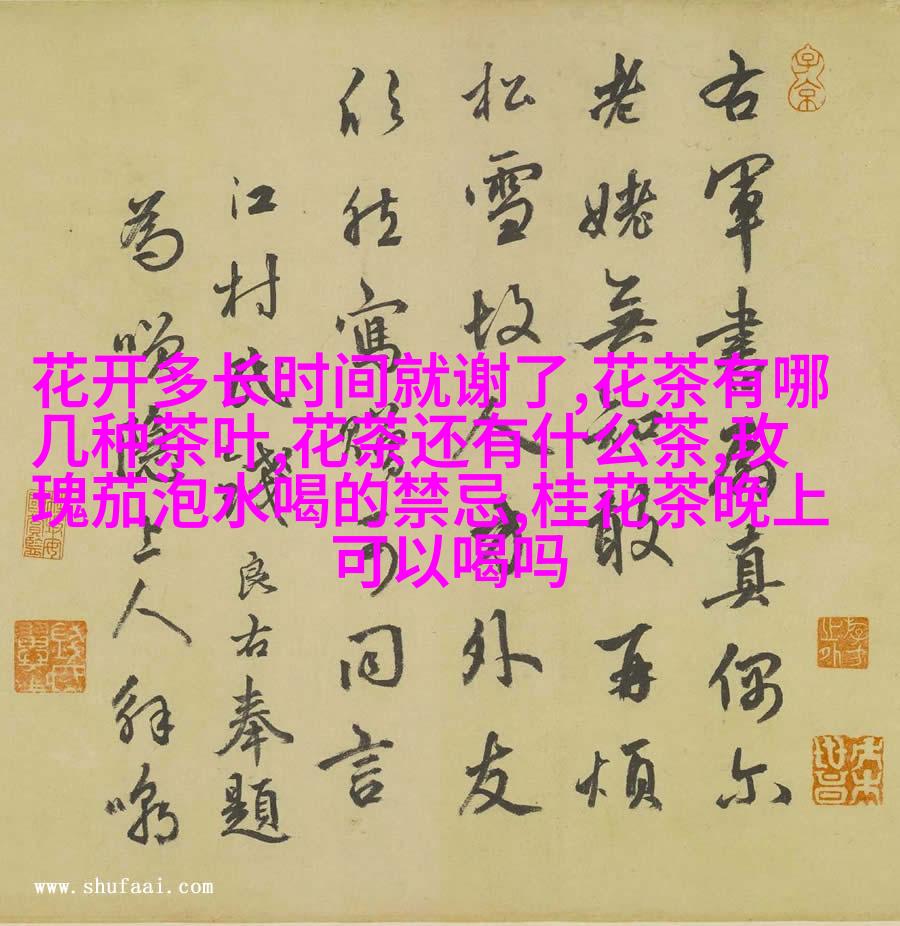 右軍書扇真偶尔
老姥無知敢再煩
松雪故人方外友
欣然寫贈可同言
江村民 良右奉題
為 隱上人解嘲
花开多长时间就谢了,花茶有哪
几种茶叶,花茶还有什么茶,玫
瑰茄泡水喝的禁忌,桂花茶晚上
可以喝吗
www.shufaai.com